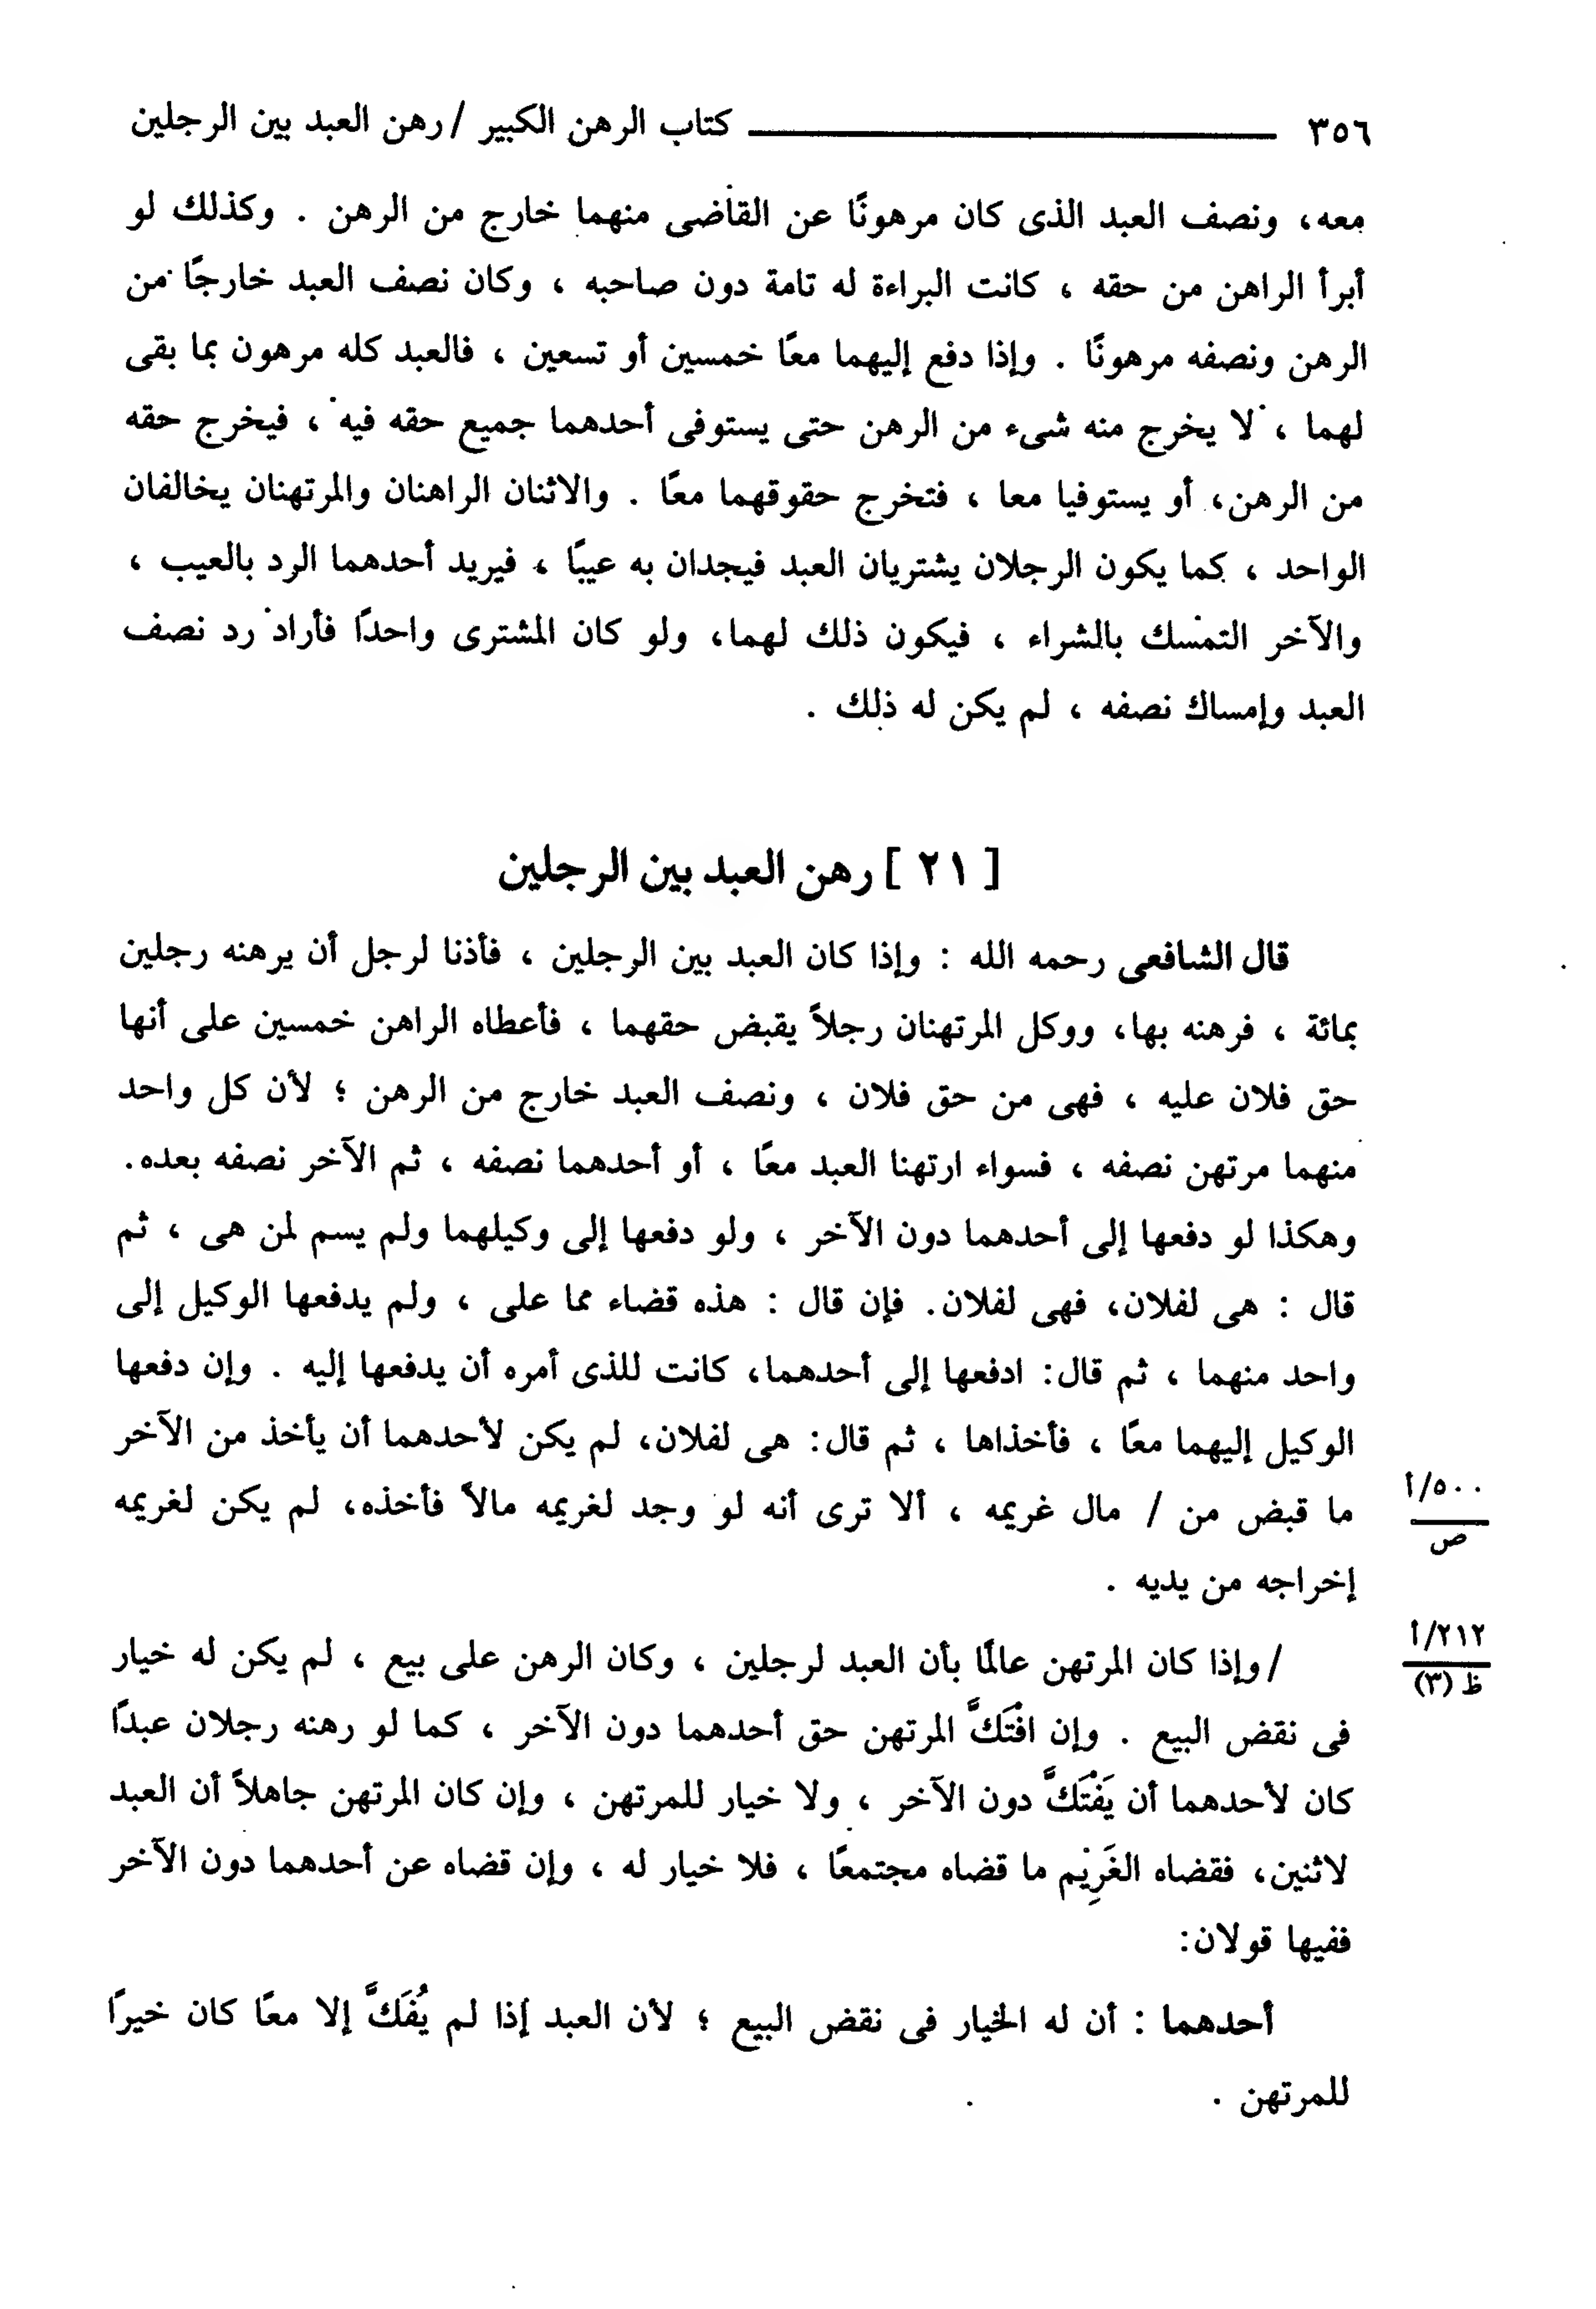 ٣٥٦ ــــــــــــــــــــ كتاب الرهن الكبير / رهن العبد بين الرجلين
معه، ونصف العبد الذى كان مرهونًا عن القاضى منهما خارج من الرهن . وكذلك لو
أبرأ الراهن من حقه ، كانت البراءة له تامة دون صاحبه ، وكان نصف العبد خارجًا من
الرهن ونصفه مرهونًا . وإذا دفع إليهما معًا خمسين أو تسعين ، فالعبد كله مرهون بما بقى
لهما ، لا يخرج منه شىء من الرهن حتى يستوفى أحدهما جميع حقه فيه ، فيخرج حقه
من الرهن، أو يستوفيا معا ، فتخرج حقوقهما معًا . والاثنان الراهنان والمرتهنان يخالفان
الواحد ، كما يكون الرجلان يشتريان العبد فيجدان به عيبًا ، فيريد أحدهما الرد بالعيب ،
والآخر التمسك بالشراء ، فيكون ذلك لهما، ولو كان المشترى واحدًا فأراد رد نصف
العبد وإمساك نصفه ، لم يكن له ذلك .
[ ٢١ ] رهن العبد بين الرجلين
قال الشافعى رحمه الله : وإذا كان العبد بين الرجلين ، فأذنا لرجل أن يرهنه رجلين
بمائة ، فرهنه بها، ووكل المرتهنان رجلاً يقبض حقهما ، فأعطاه الراهن خمسين على أنها
حق فلان عليه ، فهى من حق فلان ، ونصف العبد خارج من الرهن ؛ لأن كل واحد
منهما مرتهن نصفه ، فسواء ارتهنا العبد معًا ، أو أحدهما نصفه ، ثم الآخر نصفه بعده.
وهكذا لو دفعها إلى أحدهما دون الآخر ، ولو دفعها إلى وكيلهما ولم يسم لمن هى ، ثم
قال : هى لفلان، فهى لفلان. فإن قال : هذه قضاء مما على ، ولم يدفعها الوكيل إلى
واحد منهما ، ثم قال: ادفعها إلى أحدهما، كانت للذى أمره أن يدفعها إليه . وإن دفعها
الوكيل إليهما معًا ، فأخذاها ، ثم قال: هى لفلان، لم يكن لأحدهما أن يأخذ من الآخر
ما قبض من / مال غريمه ، ألا ترى أنه لو وجد لغريمه مالاً فأخذه، لم يكن لغريمه
٥٠٠/أ
ص
إخراجه من يديه .
/ وإذا كان المرتهن عالمًا بأن العبد لرجلين ، وكان الرهن على بيع ، لم يكن له خيار
٢١٢/أ
ظ (٣)
فى نقض البيع . وإن افْتَكَّ المرتهن حق أحدهما دون الآخر ، كما لو رهنه رجلان عبدًا
كان لأحدهما أن يَفْتَكَّ دون الآخر ، ولا خيار للمرتهن ، وإن كان المرتهن جاهلاً أن العبد
لاثنين، فقضاه الغَرِيْم ما قضاه مجتمعًا ، فلا خيار له ، وإن قضاه عن أحدهما دون الآخر
ففيها قولان:
أحدهما : أن له الخيار فى نقض البيع ؛ لأن العبد إذا لم يُفَكَّ إلا معًا كان خيرًا
للمرتهن .